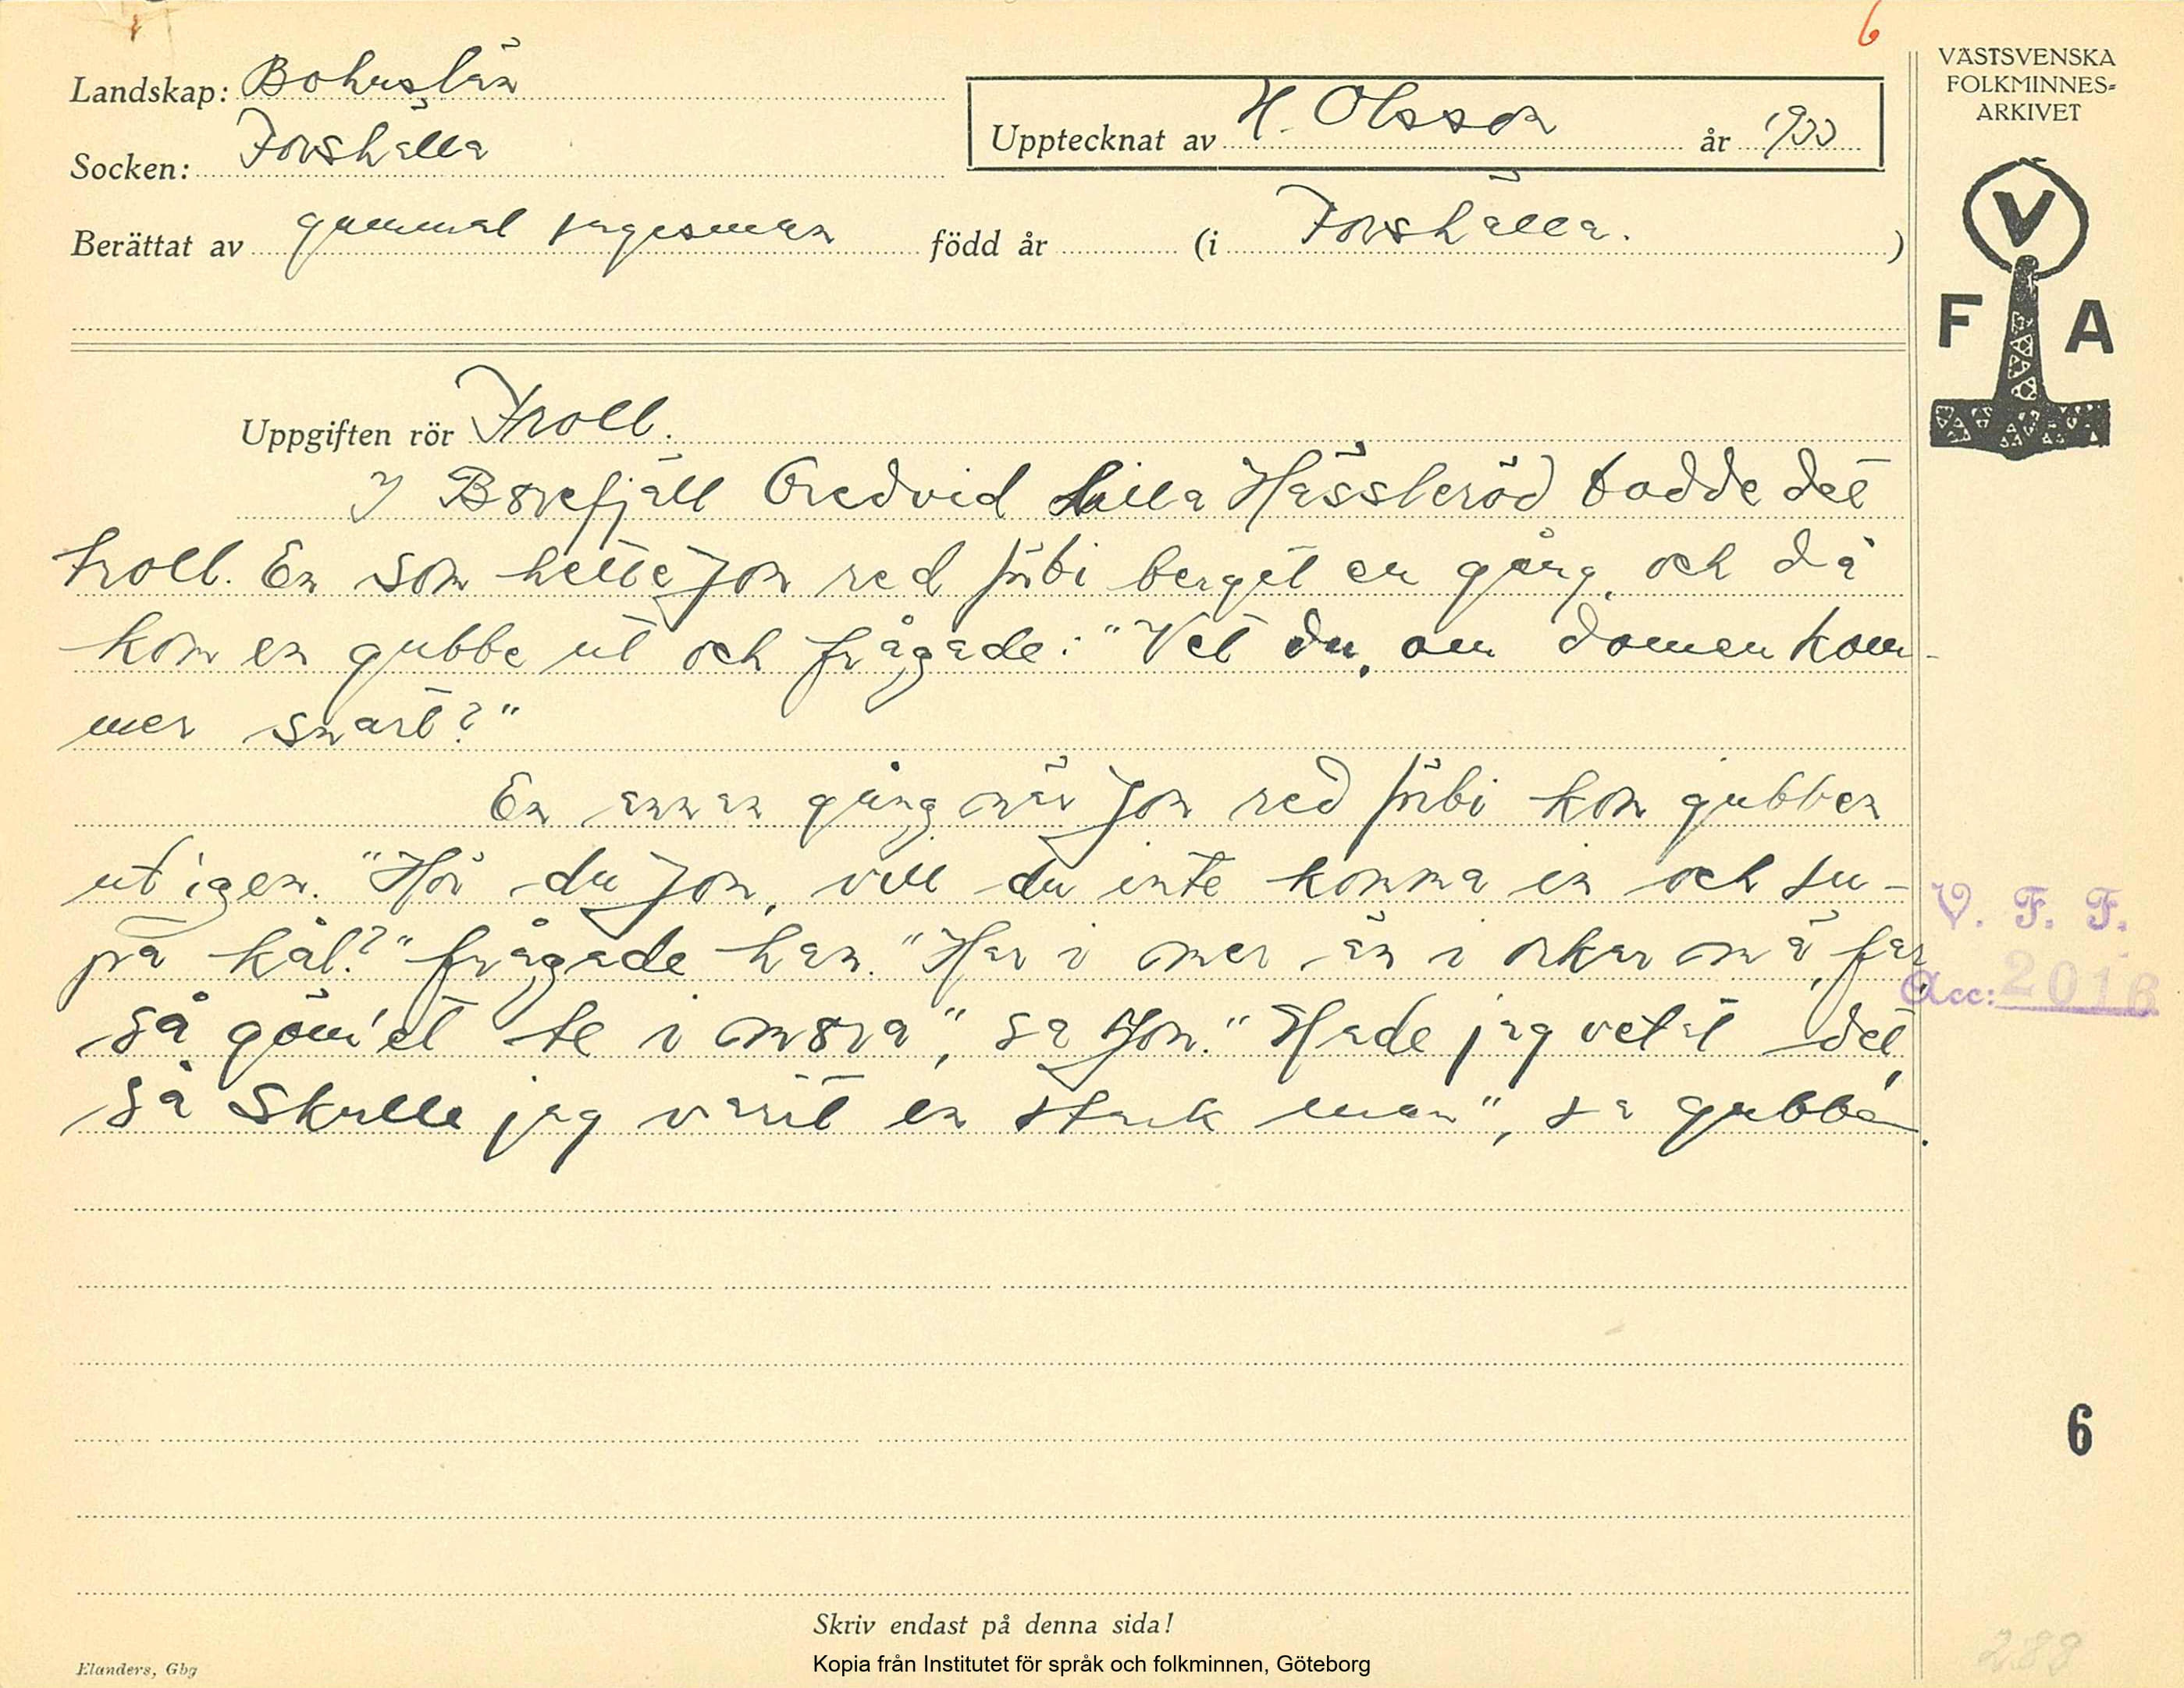 6
Landskap: Bohuslän
Socken: Forshälla
Upptecknat av H. Olsson år 1933
Berättat av gammal sagesman född år (i Forshälla.)
VÄSTSVENSKA
FOLKMINNES-
ARKIVET
V
F A
Uppgiften rör Troll.
I Börefjäll bredvid Lilla Hässleröd bodde det
troll. En som hette Jon red förbi berget en gång, och då
kom en gubbe ut och frågade: "Vet du, om domen kom-
mer snart?"
En annan gång när Jon red förbi kom gubben
ut igen. "Hör du Jon, vill du inte komma in och su-
pa kål?" frågade han. "Har i mer än i orkar mä, far,
så göm'et te i möra", sa Jon. "Hade jag vetat det,
så skulle jag varit en stark man", sa gubben.
V. F. F.
Acc: 2016
6
Skriv endast på denna sida!
Kopia från Institutet för språk och folkminnen, Göteborg
Elanders, Gbg
288